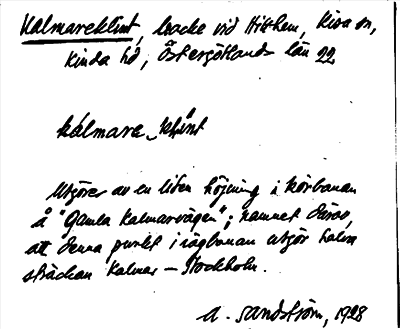 Kalmareklint, backe vid Hitthem, Kisa sn,
Kinda hd, Östergötlands län 22
kálmare ˬklìnt
Utgöres av en liten höjning i körbanan
å "Gamla Kalmarvägen"; namnet därav,
att denna punkt i vägbanan utgör halva
sträckan Kalmar – Stockholm.
A. Sandström, 1928